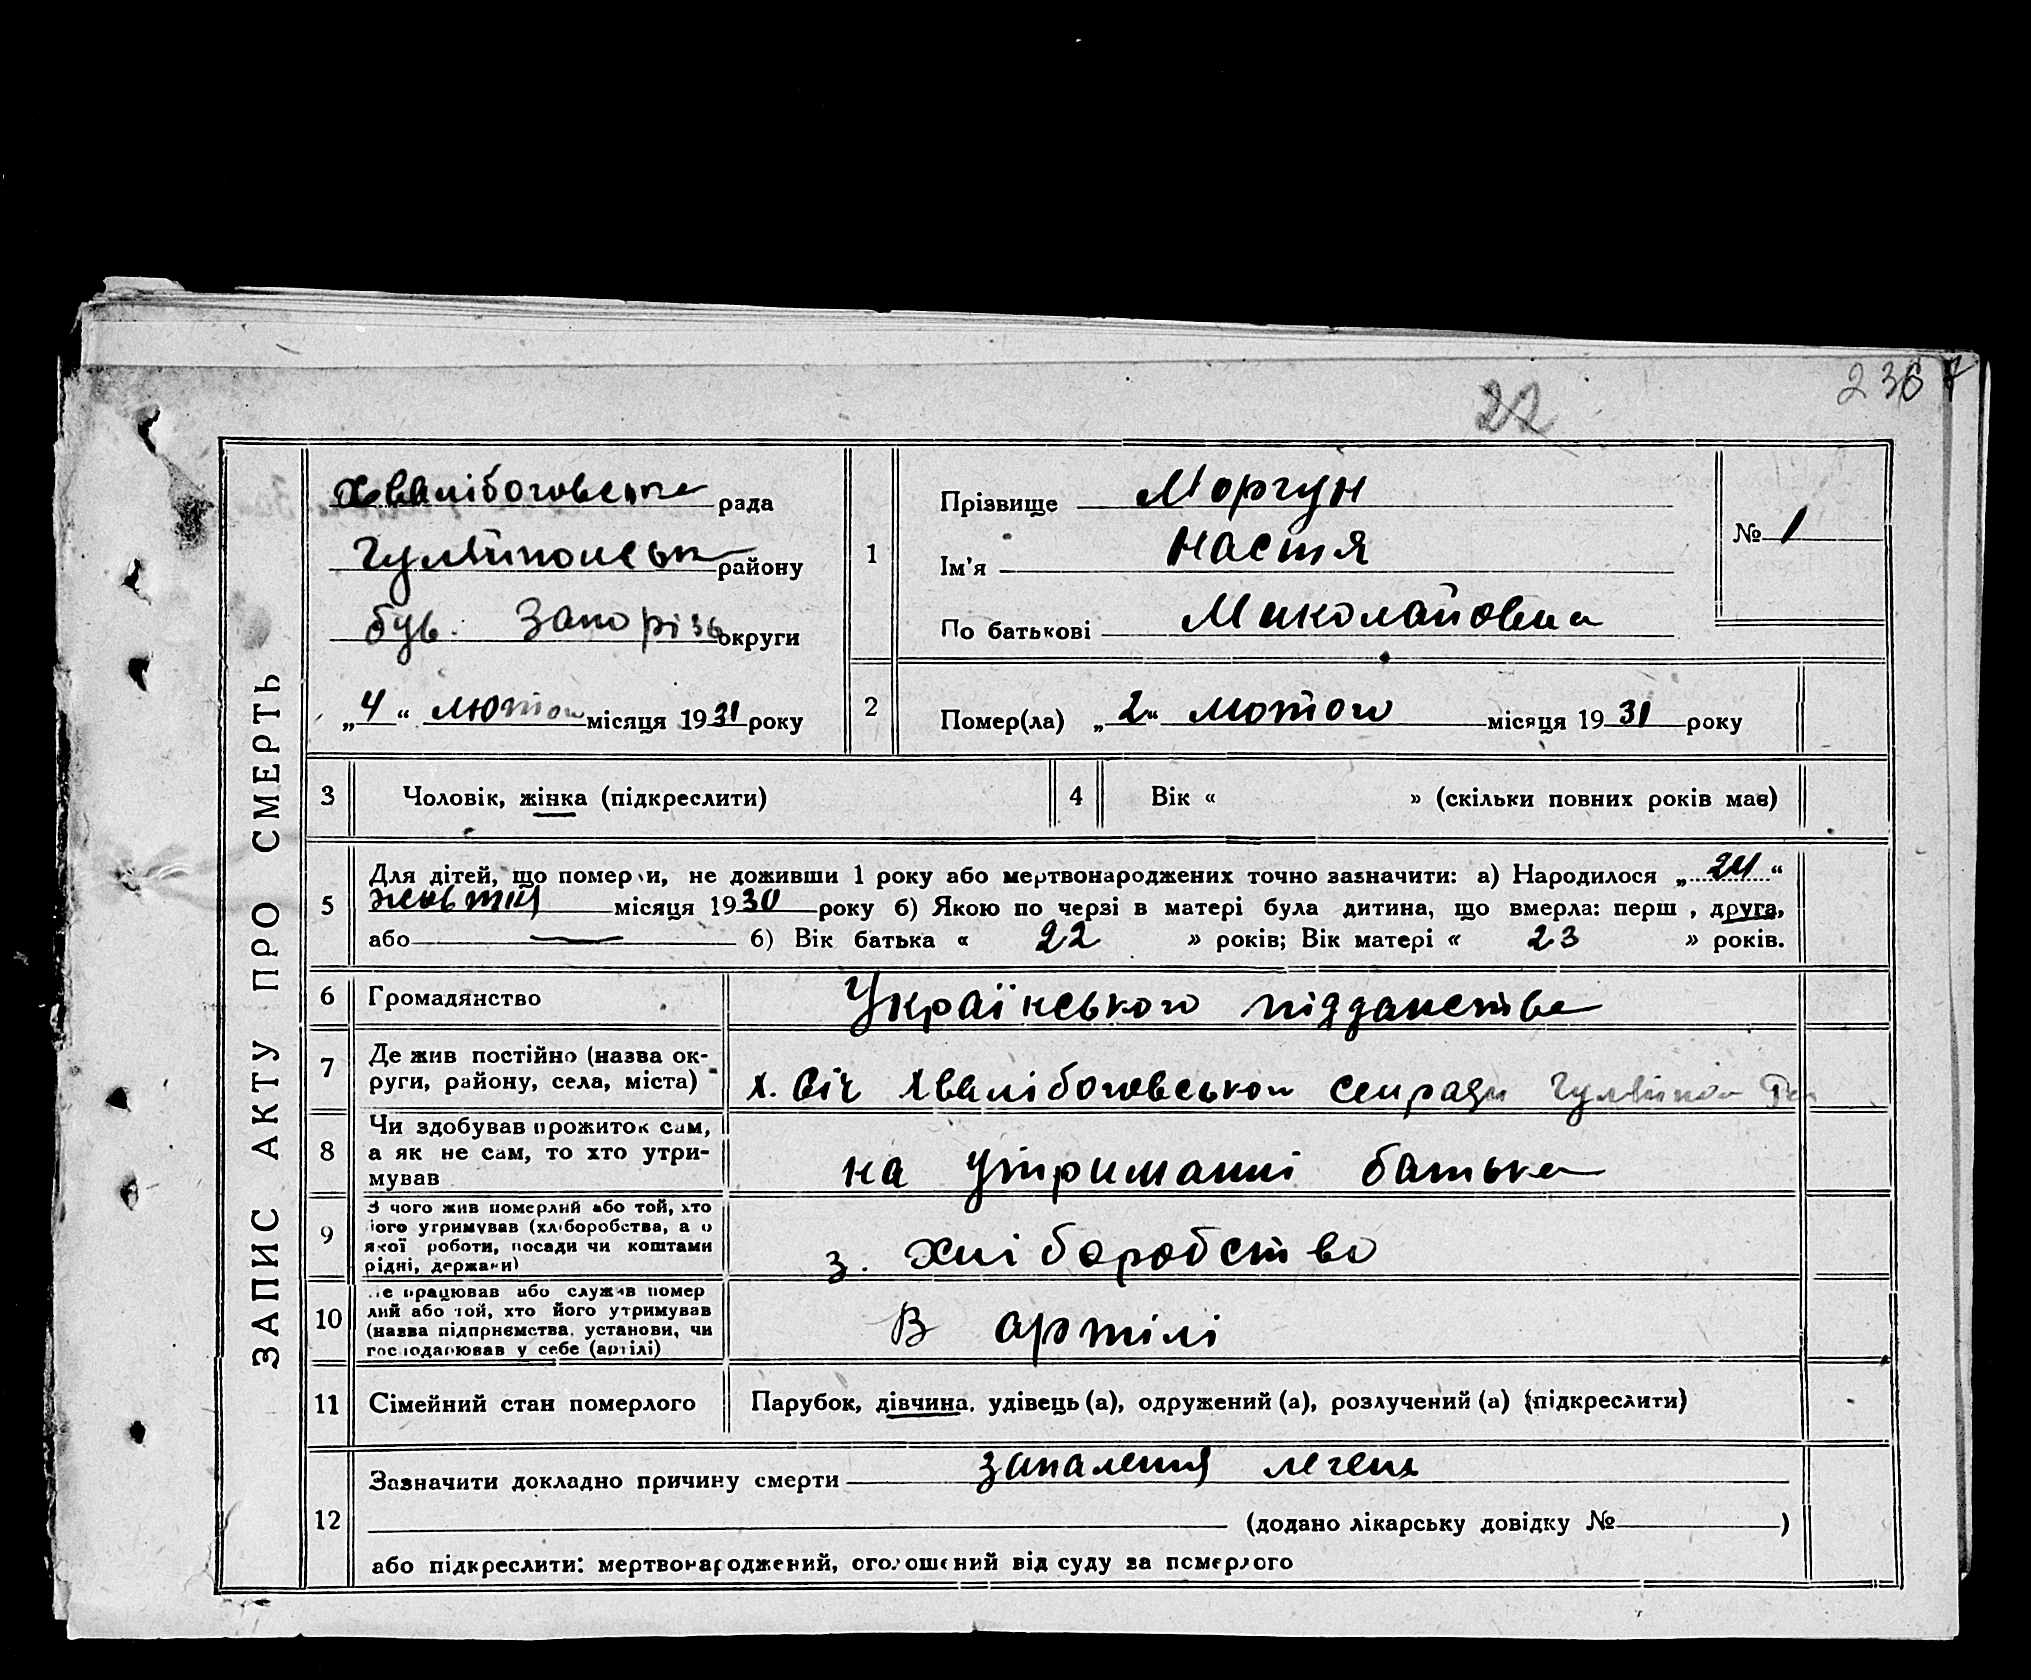 2367
22
ЗАПИС АКТУ ПРО СМЕРТЬ
Хвалібоговська рада
Гуляйпольськ району
був. Запорізь округи
„4“ лютого місяця 1931 року
1
Прізвище Моргун
Ім'я Настя
По батькові Миколайовна
№ 1
2
Помер(ла) „2“ лютого місяця 1931 року
3 Чоловік, жінка (підкреслити)
4 Вік « » (скільки повних років має)
5
Для дітей, що померли, не доживши 1 року або мертвонароджених точно зазначити: а) Народилося „24“
жовтня місяця 1930 року б) Якою по черзі в матері була дитина, що вмерла: перш , друга,
або — б) Вік батька « 22 » років; Вік матері « 23 » років.
6 Громадянство Українського підданства
7 Де жив постійно (назва ок-
руги, району, села, міста) х. Січ Хвалібоговської сільради Гуляйпол
8 Чи здобував прожиток сам,
а як не сам, то хто утри-
мував на утриманні батька
9 З чого жив померлий або той, хто
його утримував (хліборобства, а о
якої роботи, посади чи коштами
рідні, держави) з. хліборобство
10 Де працював або служив помер
лий або той, хто його утримував
(назва підприємства, установи, чи
господарював у себе (артілі) В артілі
11 Сімейний стан померлого Парубок, дівчина, удівець (а), одружений (а), розлучений (а) (підкреслити)
12
Зазначити докладно причину смерти запалення легень
(додано лікарську довідку № )
або підкреслити: мертвонароджений, оголошений від суду за померлого